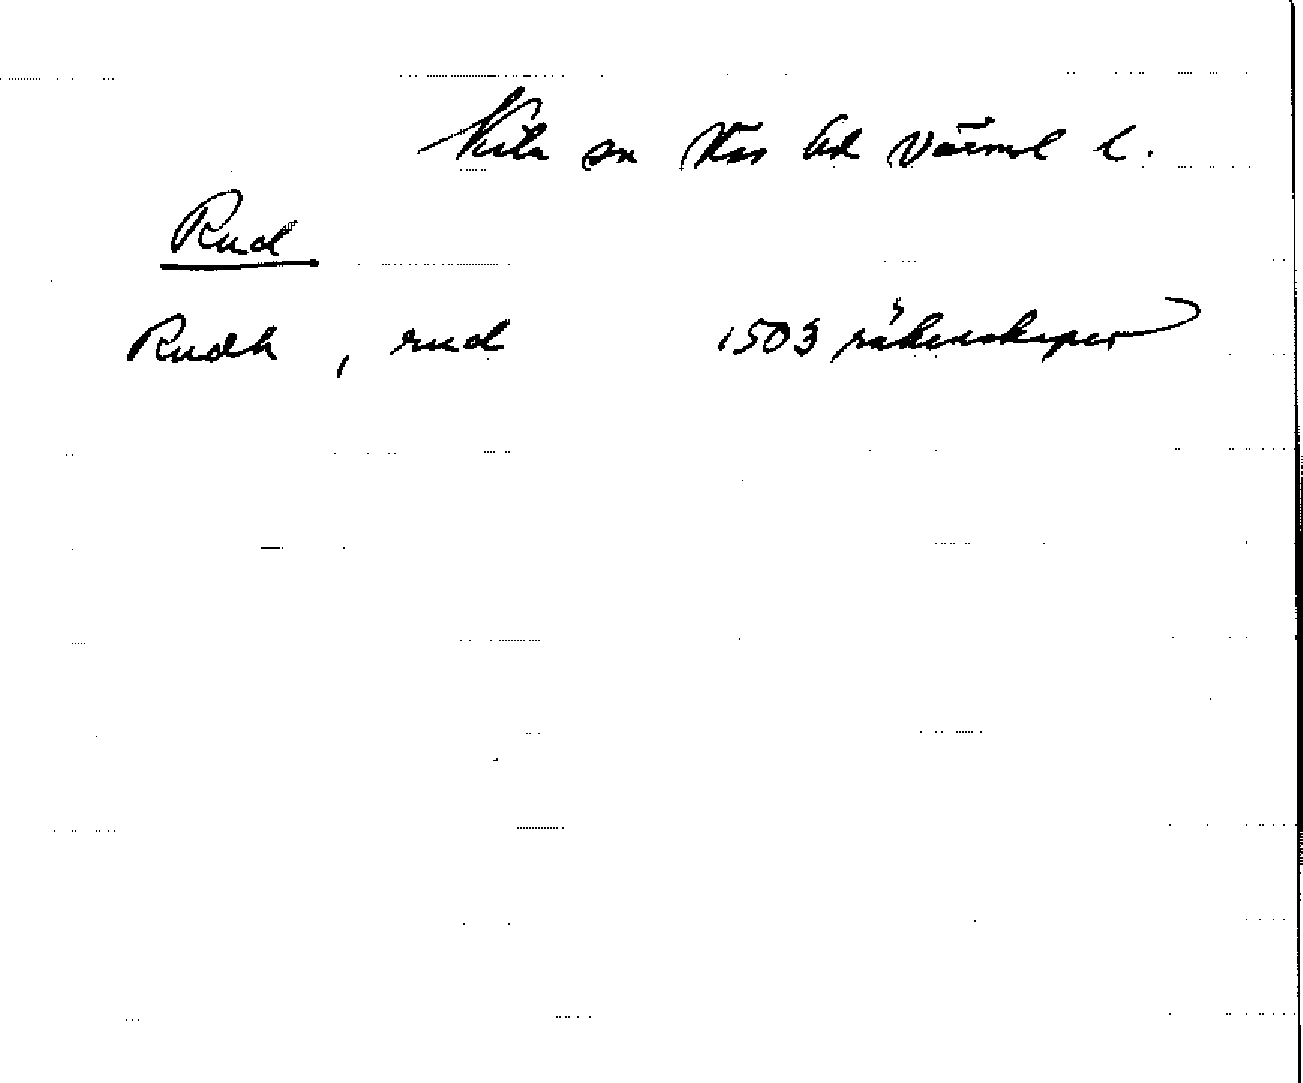 Kila sn Näs hd Värml l.
Rud
Rudh , rud 1503 räkenskaper